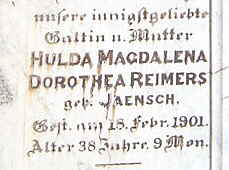 unsere innigstgeliebte
Gattin u. Mutter
HULDA MAGDALENA
DOROTHEA REIMERS
geb. JAENSCH.
Gest. am 18. Febr. 1901.
Alter 38 Jahre. 9 Mon.